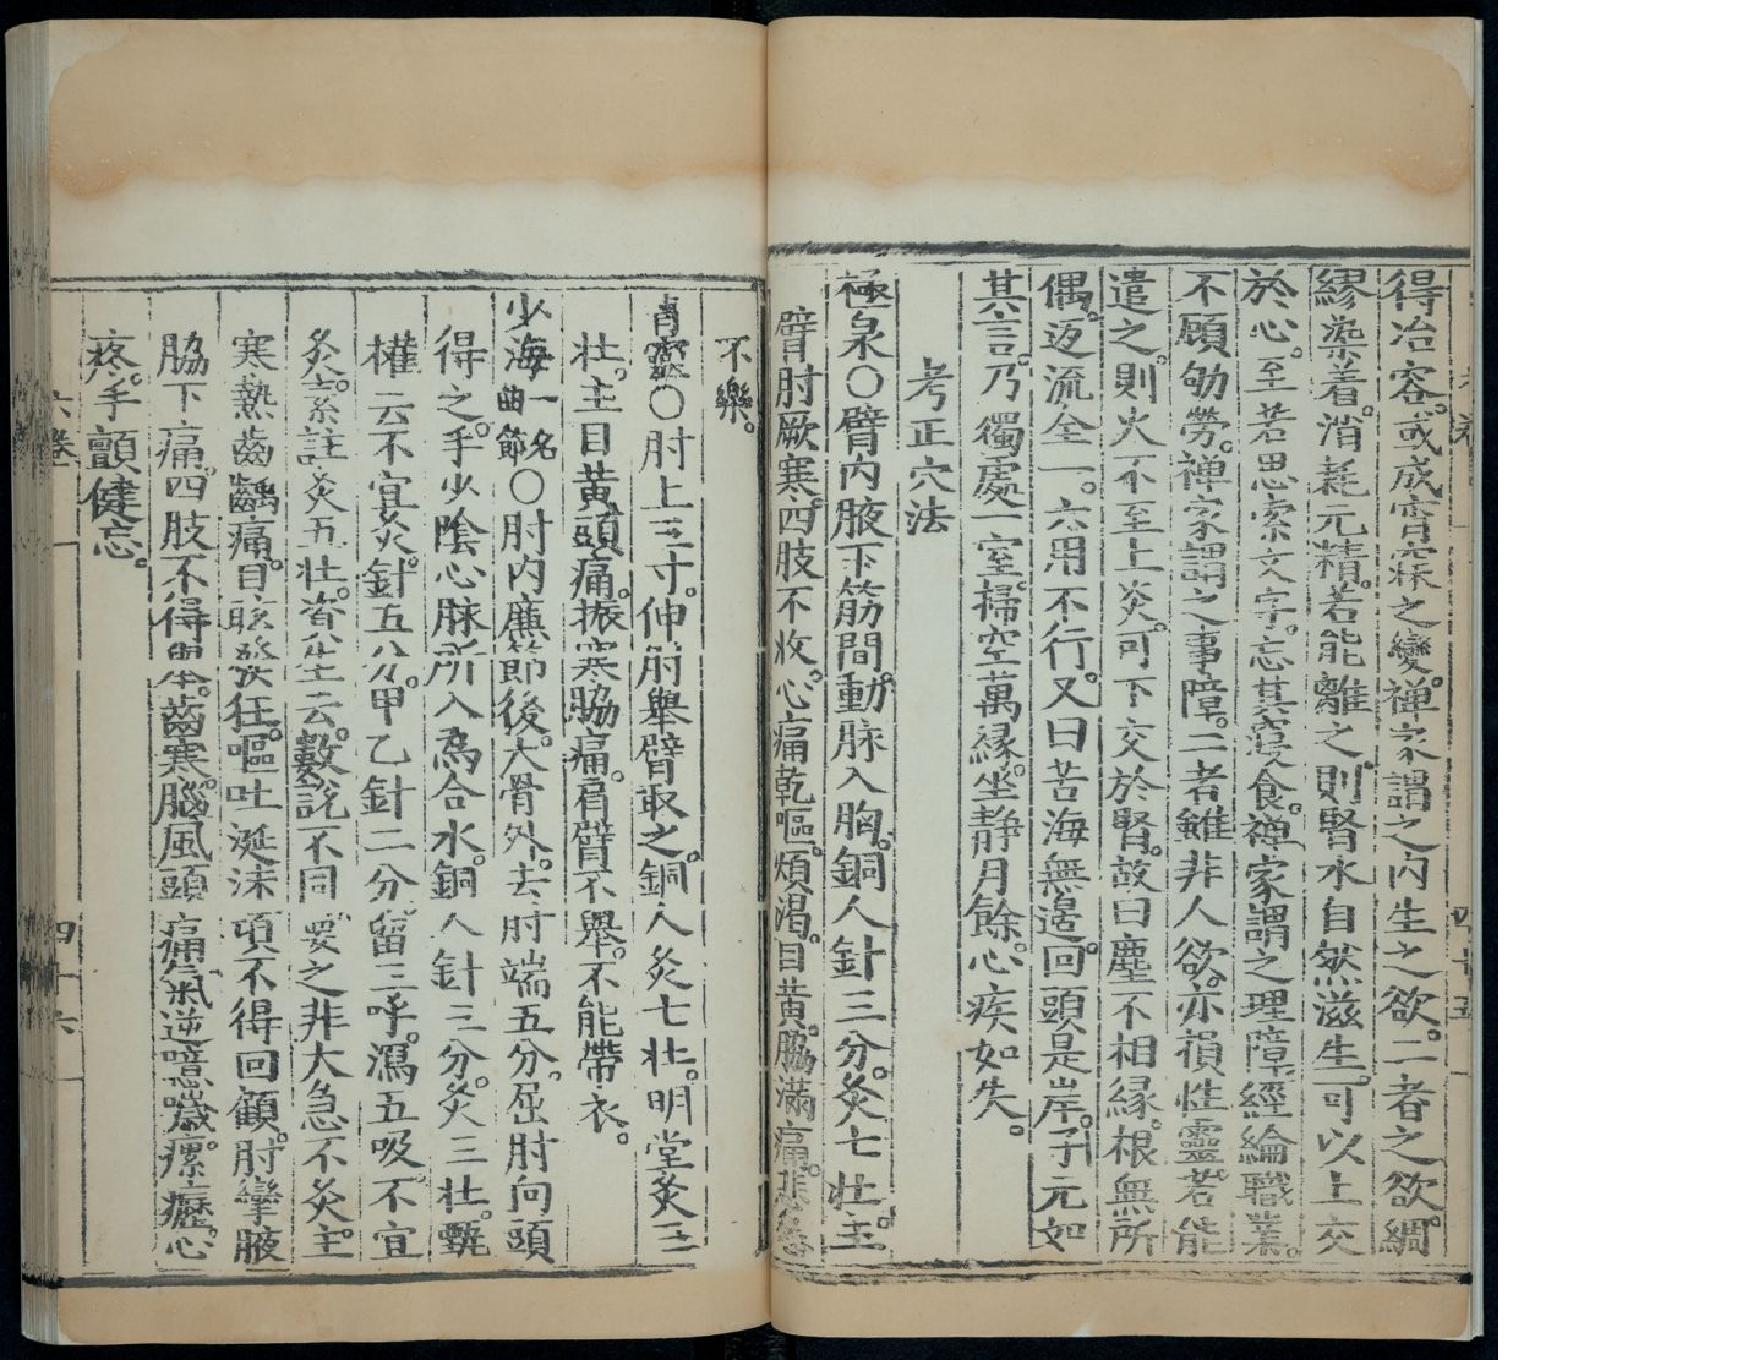 得冶容。或成宵寐之變。禅家謂之内生之欲。二者之欲。綢
繆㴞着。消耗元精。若能離之。則腎水自然滋生。可以上交
於心。至若思索文字。忘其寢食。禅家謂之理障。經綸職業。
不顧劬勞。禅家謂之事障。二者雖非人欲。亦損性靈。若能
遣之。則火不至上炎。可下交於腎。故曰塵不相縁。根無所
偶。返流全一。六用不行。又曰苦海無邉。回頭是岸。子元如
其言。乃獨處一室。掃空萬縁。坐静月餘。心疾如失。
考正穴法
極泉〇臂内腋下筋間。動脉入胸。銅人針三分。灸七壮。主
臂肘厥寒。四肢不收。心痛乾嘔。煩渴。目黄。脇滿痛。悲愁
不樂。
青靈〇肘上三寸。伸肘舉臂取之。銅人灸七壮。明堂灸三
壮。主目黄頭痛。振寒脇痛。肩臂不舉。不能帶衣。
少海一名曲節〇肘内廉節後。大骨外。去肘端五分。屈肘向頭
得之。手少陰心脉所入為合水。銅人針三分。灸三壮。甄
權云不宜灸。針五分。甲乙針二分。留三呼。瀉五吸。不宜
灸。素註灸五壮。資生云。數説不同。要之非大急不灸。主
寒熱齒齲痛。目眩發狂。嘔吐涎沫。項不得回顧。肘攣腋
脇下痛。四肢不得舉。齒寒。腦風頭痛。氣逆噫噦。瘰癧。心
疼。手顫健忘。
六卷
四十六
四十五